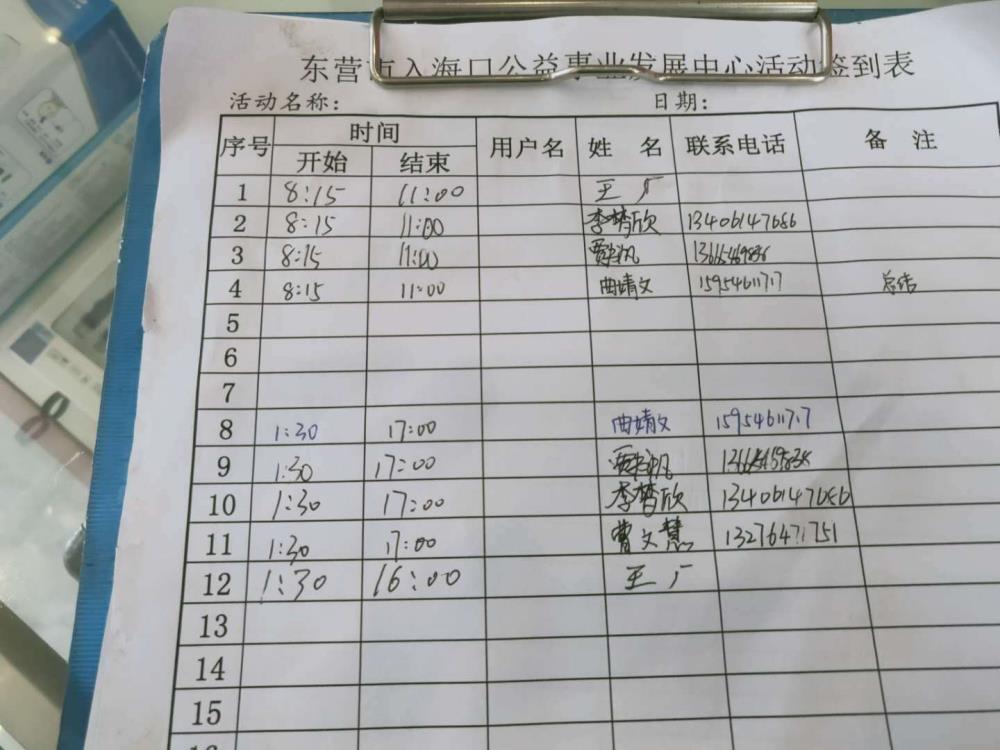 东营市入海口公益事业发展中心活动签到表
活动名称： 日期：
序号 时间 用户名 姓 名 联系电话 备 注
开始 结束
1 8:15 11:00 王广
2 8:15 11:00 李梦欣 13406147686
3 8:15 11:00
4 8:15 11:00 曲婧文 15954611717 总结
5
6
7
8 1:30 17:00 曲婧文 15954611717
9 1:30 17:00
10 1:30 17:00 李梦欣 13406147686
11 1:30 17:00 曹文慧 13276471751
12 1:30 16:00 王广
13
14
15